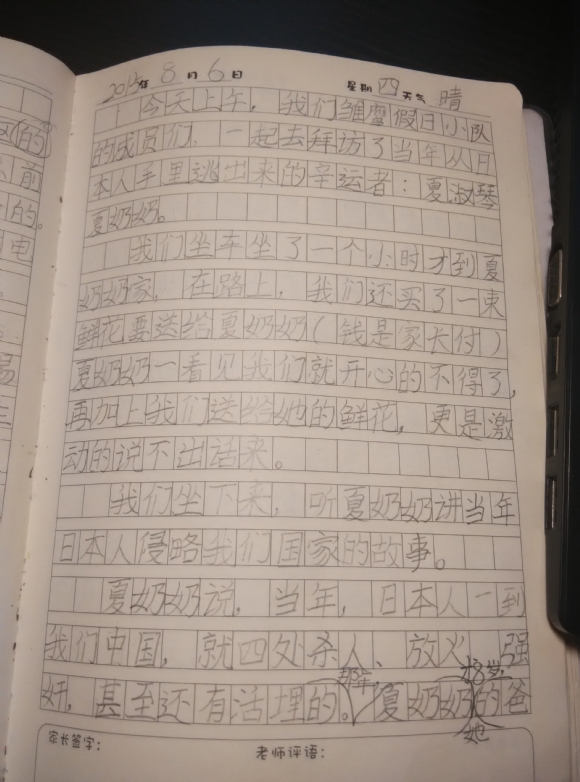 2015年 8月 6日 星期四 天气 晴
今天上午，我们雏鹰假日小队
的成员们，一起去拜访了当年从日
本人手里逃出来的辛运者：夏淑琴
夏奶奶。
我们坐车坐了一个小时才到夏
奶奶家，在路上，我们还买了一束
鲜花要送给夏奶奶（钱是家长付）
夏奶奶一看见我们就开心的不得了，
再加上我们送给她的鲜花，更是激
动的说不出话来。
我们坐下来，听夏奶奶讲当年
日本人侵略我们国家的故事。
夏奶奶说，当年，日本人一到
我们中国，就四处杀人、放火、强
奸，甚至还有活埋的。那年，夏奶奶才8岁，她的爸
家长签字：
老师评语：
的
前
的。
电